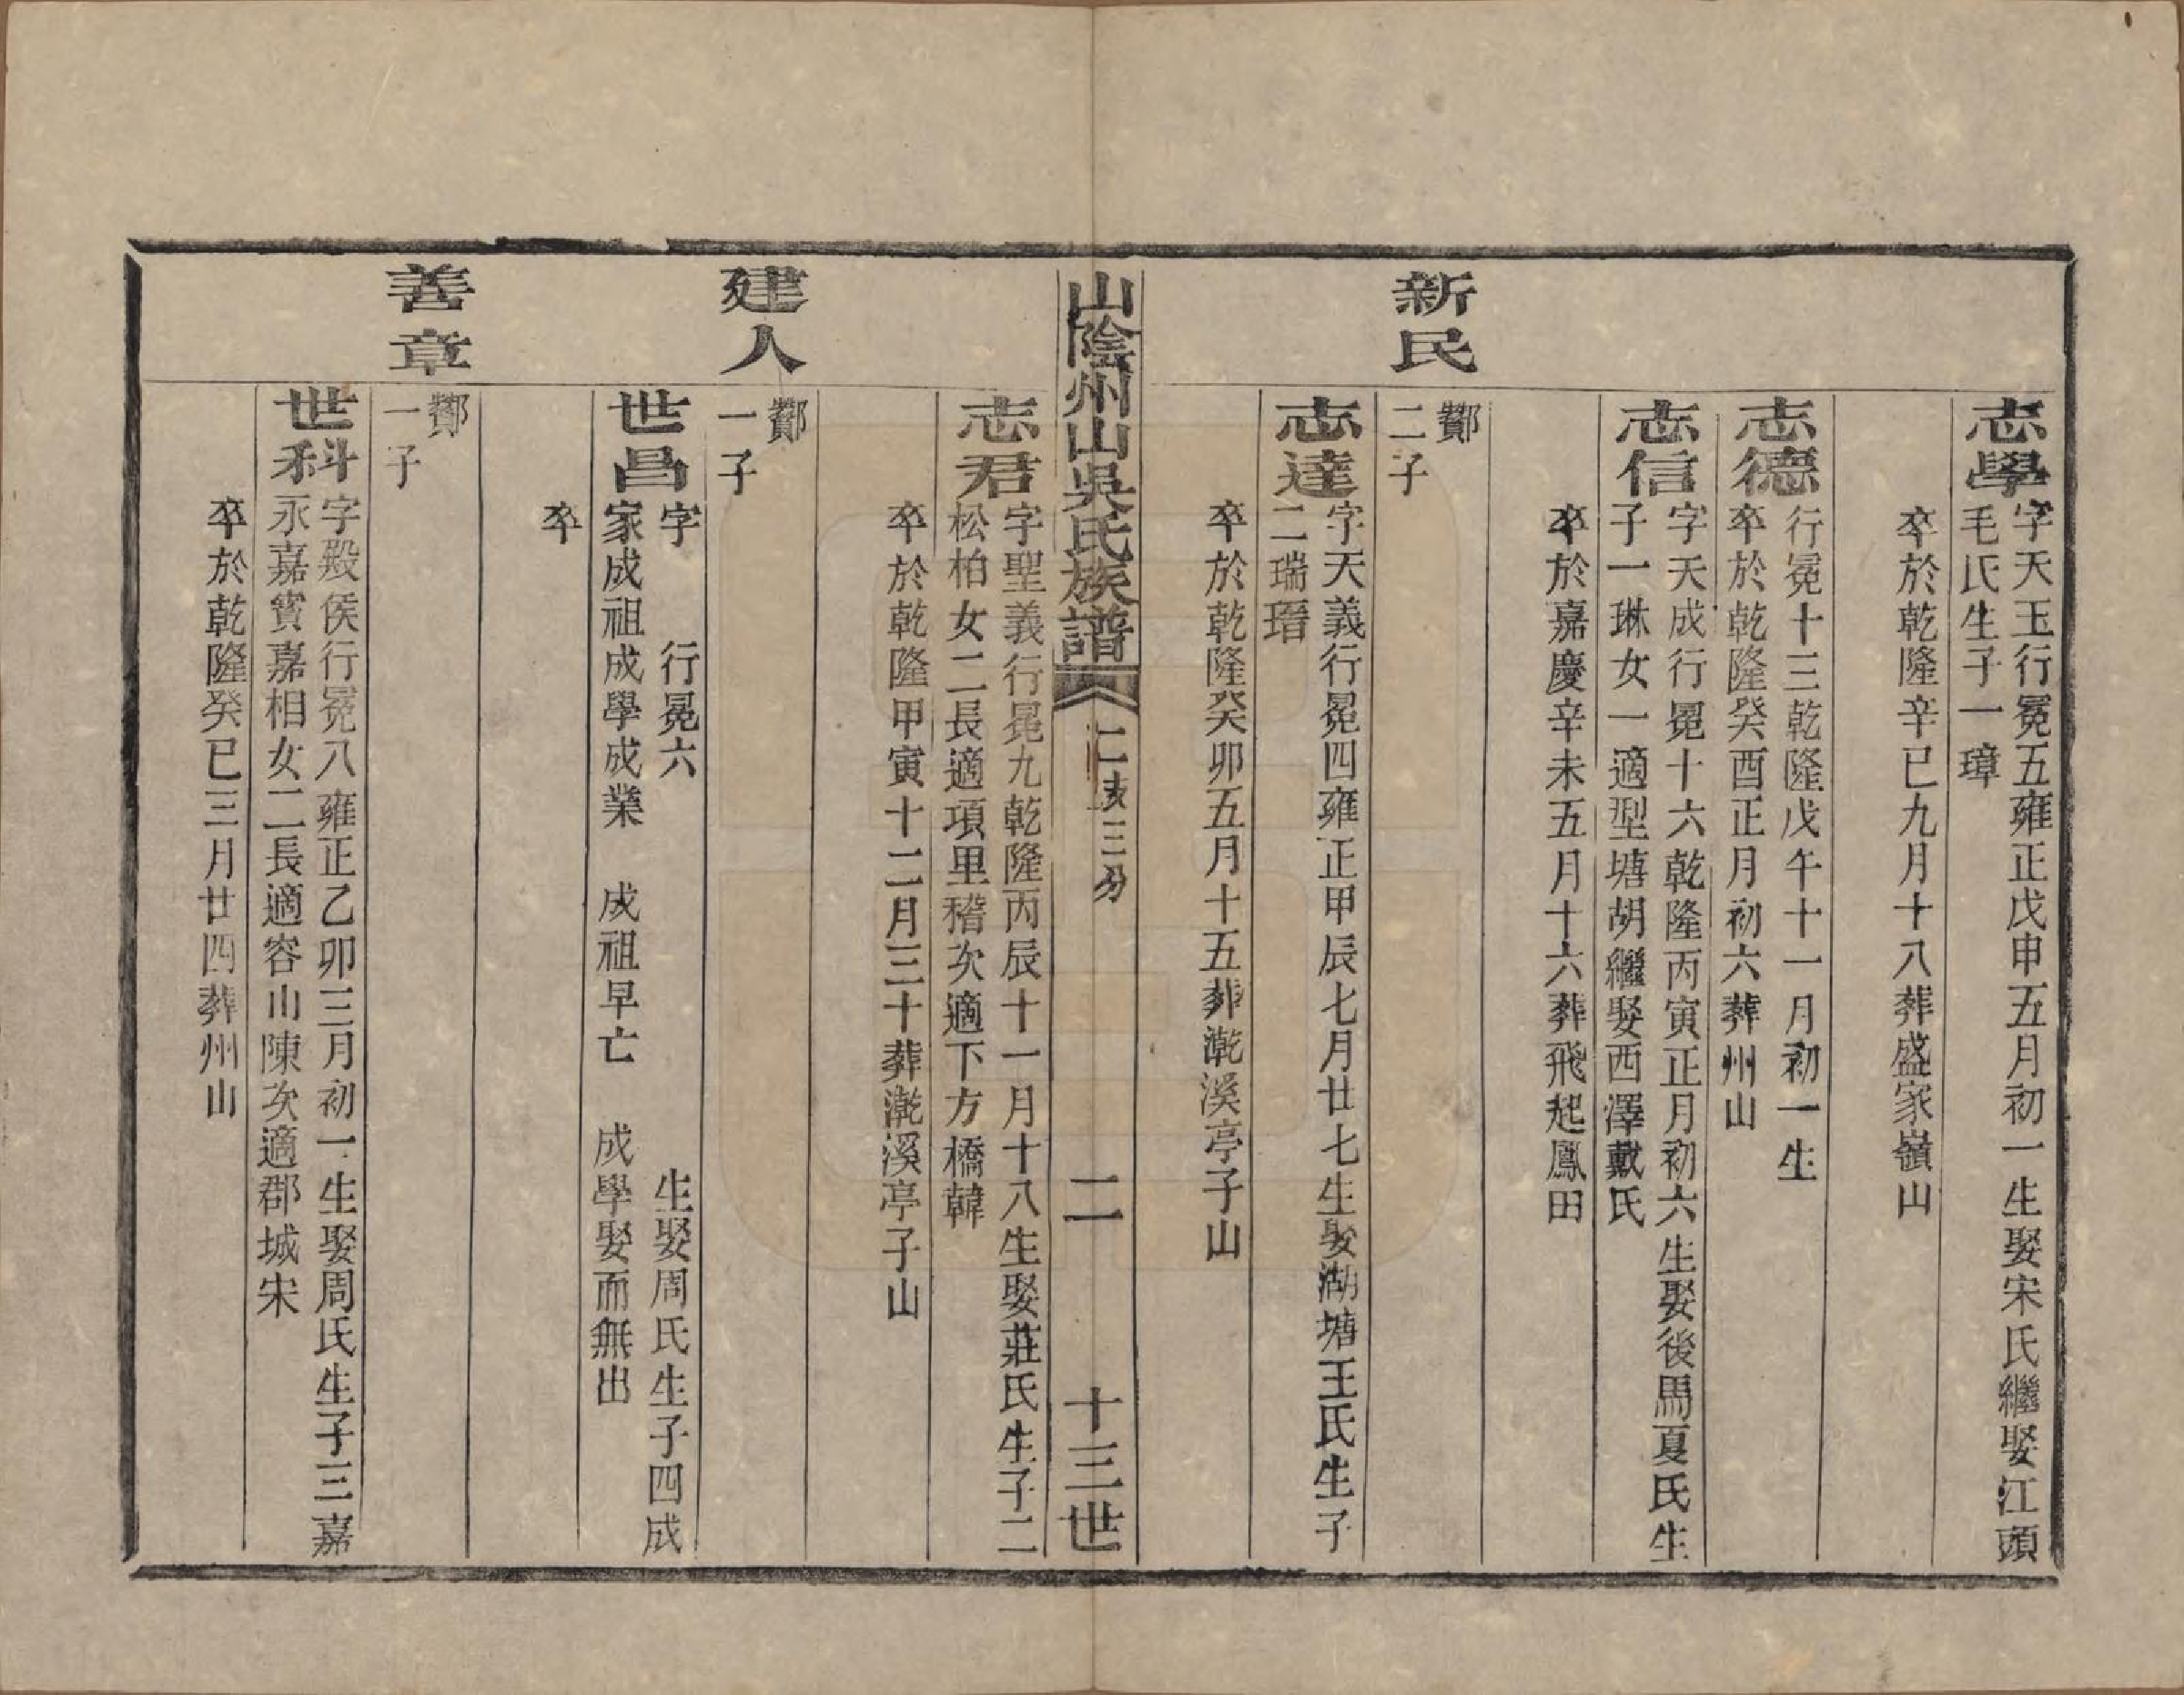 志學
字天玉行冕五雍正戊申五月初一生娶宋氏繼娶江頭
毛氏生子一璋
卒於乾隆辛巳九月十八葬盛家嶺山
志德
行冕十三乾隆戊午十一月初一生
卒於乾隆癸酉正月初六葬州山
志信
字天成行冕十六乾隆丙寅正月初六生娶後馬夏氏生
子一琳女一適型塘胡繼娶西澤戴氏
卒於嘉慶辛未五月十六葬飛起鳳田
新民
酇
二子
志達
字天義行冕四雍正甲辰七月廿七生娶湖塘王氏生子
二瑞瑨
卒於乾隆癸卯五月十五葬漧溪亭子山
山陰州山吳氏族譜
二支三分
二
十三世
志君
字聖義行冕九乾隆丙辰十一月十八生娶莊氏生子二
松柏女二長適項里稽次適下方橋韓
卒於乾隆甲寅十二月三十葬漧溪亭子山
建人
酇
一子
世昌
字 行冕六 生娶周氏生子四成
家成祖成學成業 成祖早亡 成學娶而無出
卒
善章
酇
一子
世科
字殿侯行冕八雍正乙卯三月初一生娶周氏生子三嘉
永嘉賓嘉相女二長適容山陳次適郡城宋
卒於乾隆癸巳三月廿四葬州山